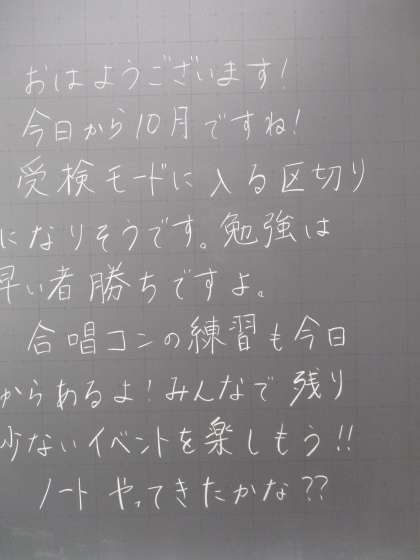 おはようございます!
今日から10月ですね!
受検モードに入る区切り
になりそうです。勉強は
早い者勝ちですよ。
合唱コンの練習も今日
からあるよ!みんなで残り
少ないイベントを楽しもう!!
ノートやってきたかな??